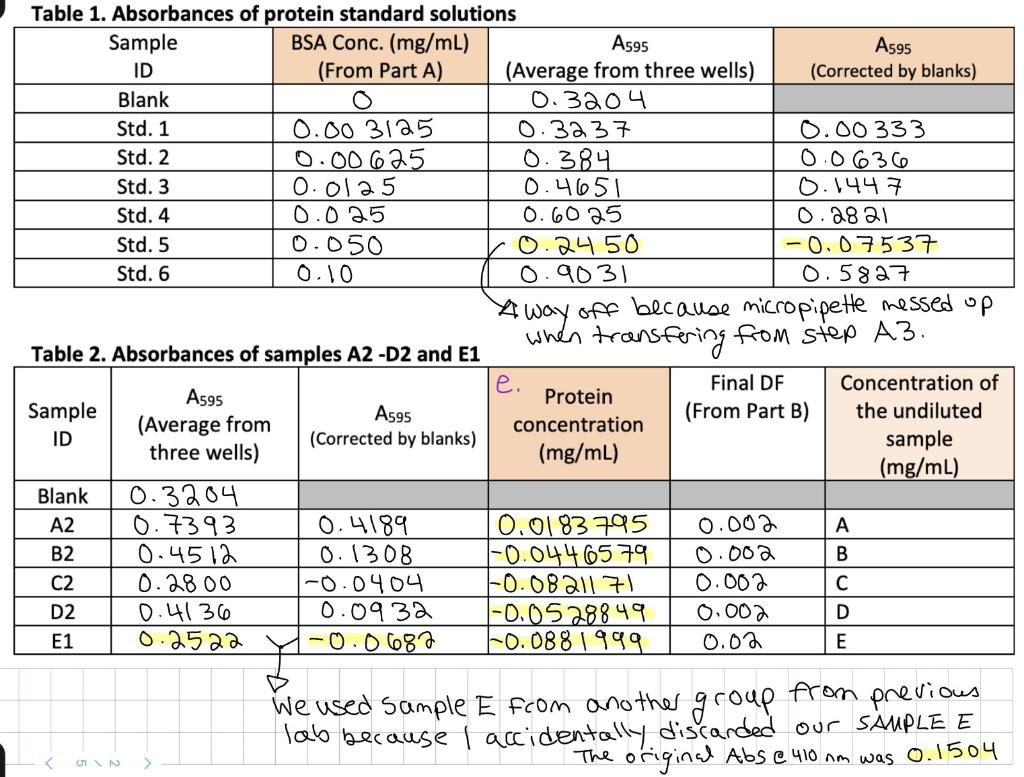 Table 1. Absorbances of protein standard solutions
Sample ID BSA Conc. (mg/mL) (From Part A) A595 (Average from three wells) A595 (Corrected by blanks)
Blank 0 0.3204
Std. 1 0.003125 0.3237 0.00333
Std. 2 0.00625 0.384 0.0636
Std. 3 0.0125 0.4651 0.1447
Std. 4 0.025 0.6025 0.2821
Std. 5 0.050 0.2450 -0.07537
Std. 6 0.10 0.9031 0.5827
way off because micropipette messed up
when transfering from step A3.
Table 2. Absorbances of samples A2 -D2 and E1
e.
Sample ID A595 (Average from three wells) A595 (Corrected by blanks) Protein concentration (mg/mL) Final DF (From Part B) Concentration of the undiluted sample (mg/mL)
Blank 0.3204
A2 0.7393 0.4189 0.0183795 0.002 A
B2 0.4512 0.1308 -0.0446579 0.002 B
C2 0.2800 -0.0404 -0.0821171 0.002 C
D2 0.4136 0.0932 -0.0528849 0.002 D
E1 0.2522 -0.0682 -0.0881999 0.02 E
We used Sample E from another group from previous
lab because I accidentally discarded our SAMPLE E
The original Abs @ 410 nm was 0.1504
< 5 \ 2 >